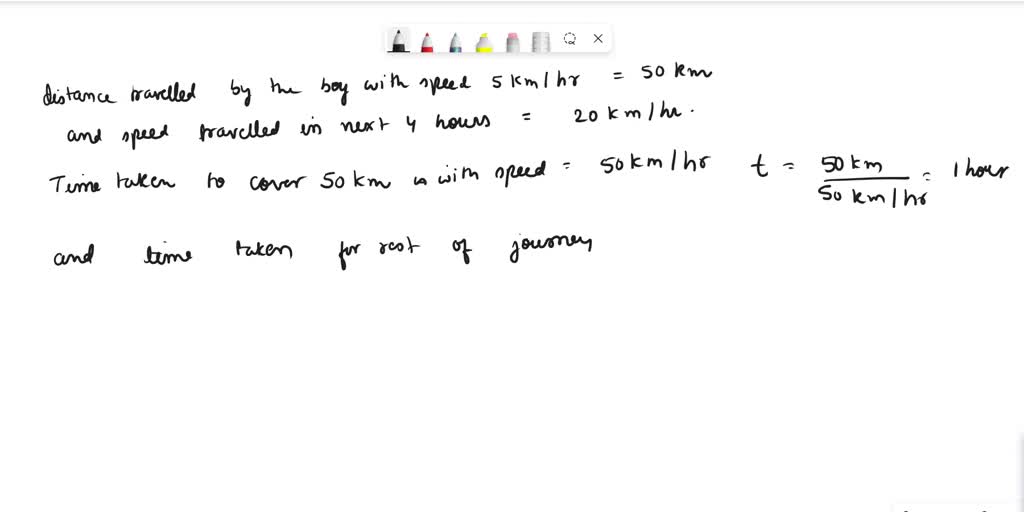 distance travelled by the boy with speed 5 km/hr = 50 km
and speed travelled in next 4 hours = 20 km/hr.
Time taken to cover 50 km in with speed = 50 km/hr t = 50 km / 50 km/hr = 1 hour
and time taken for rest of journey